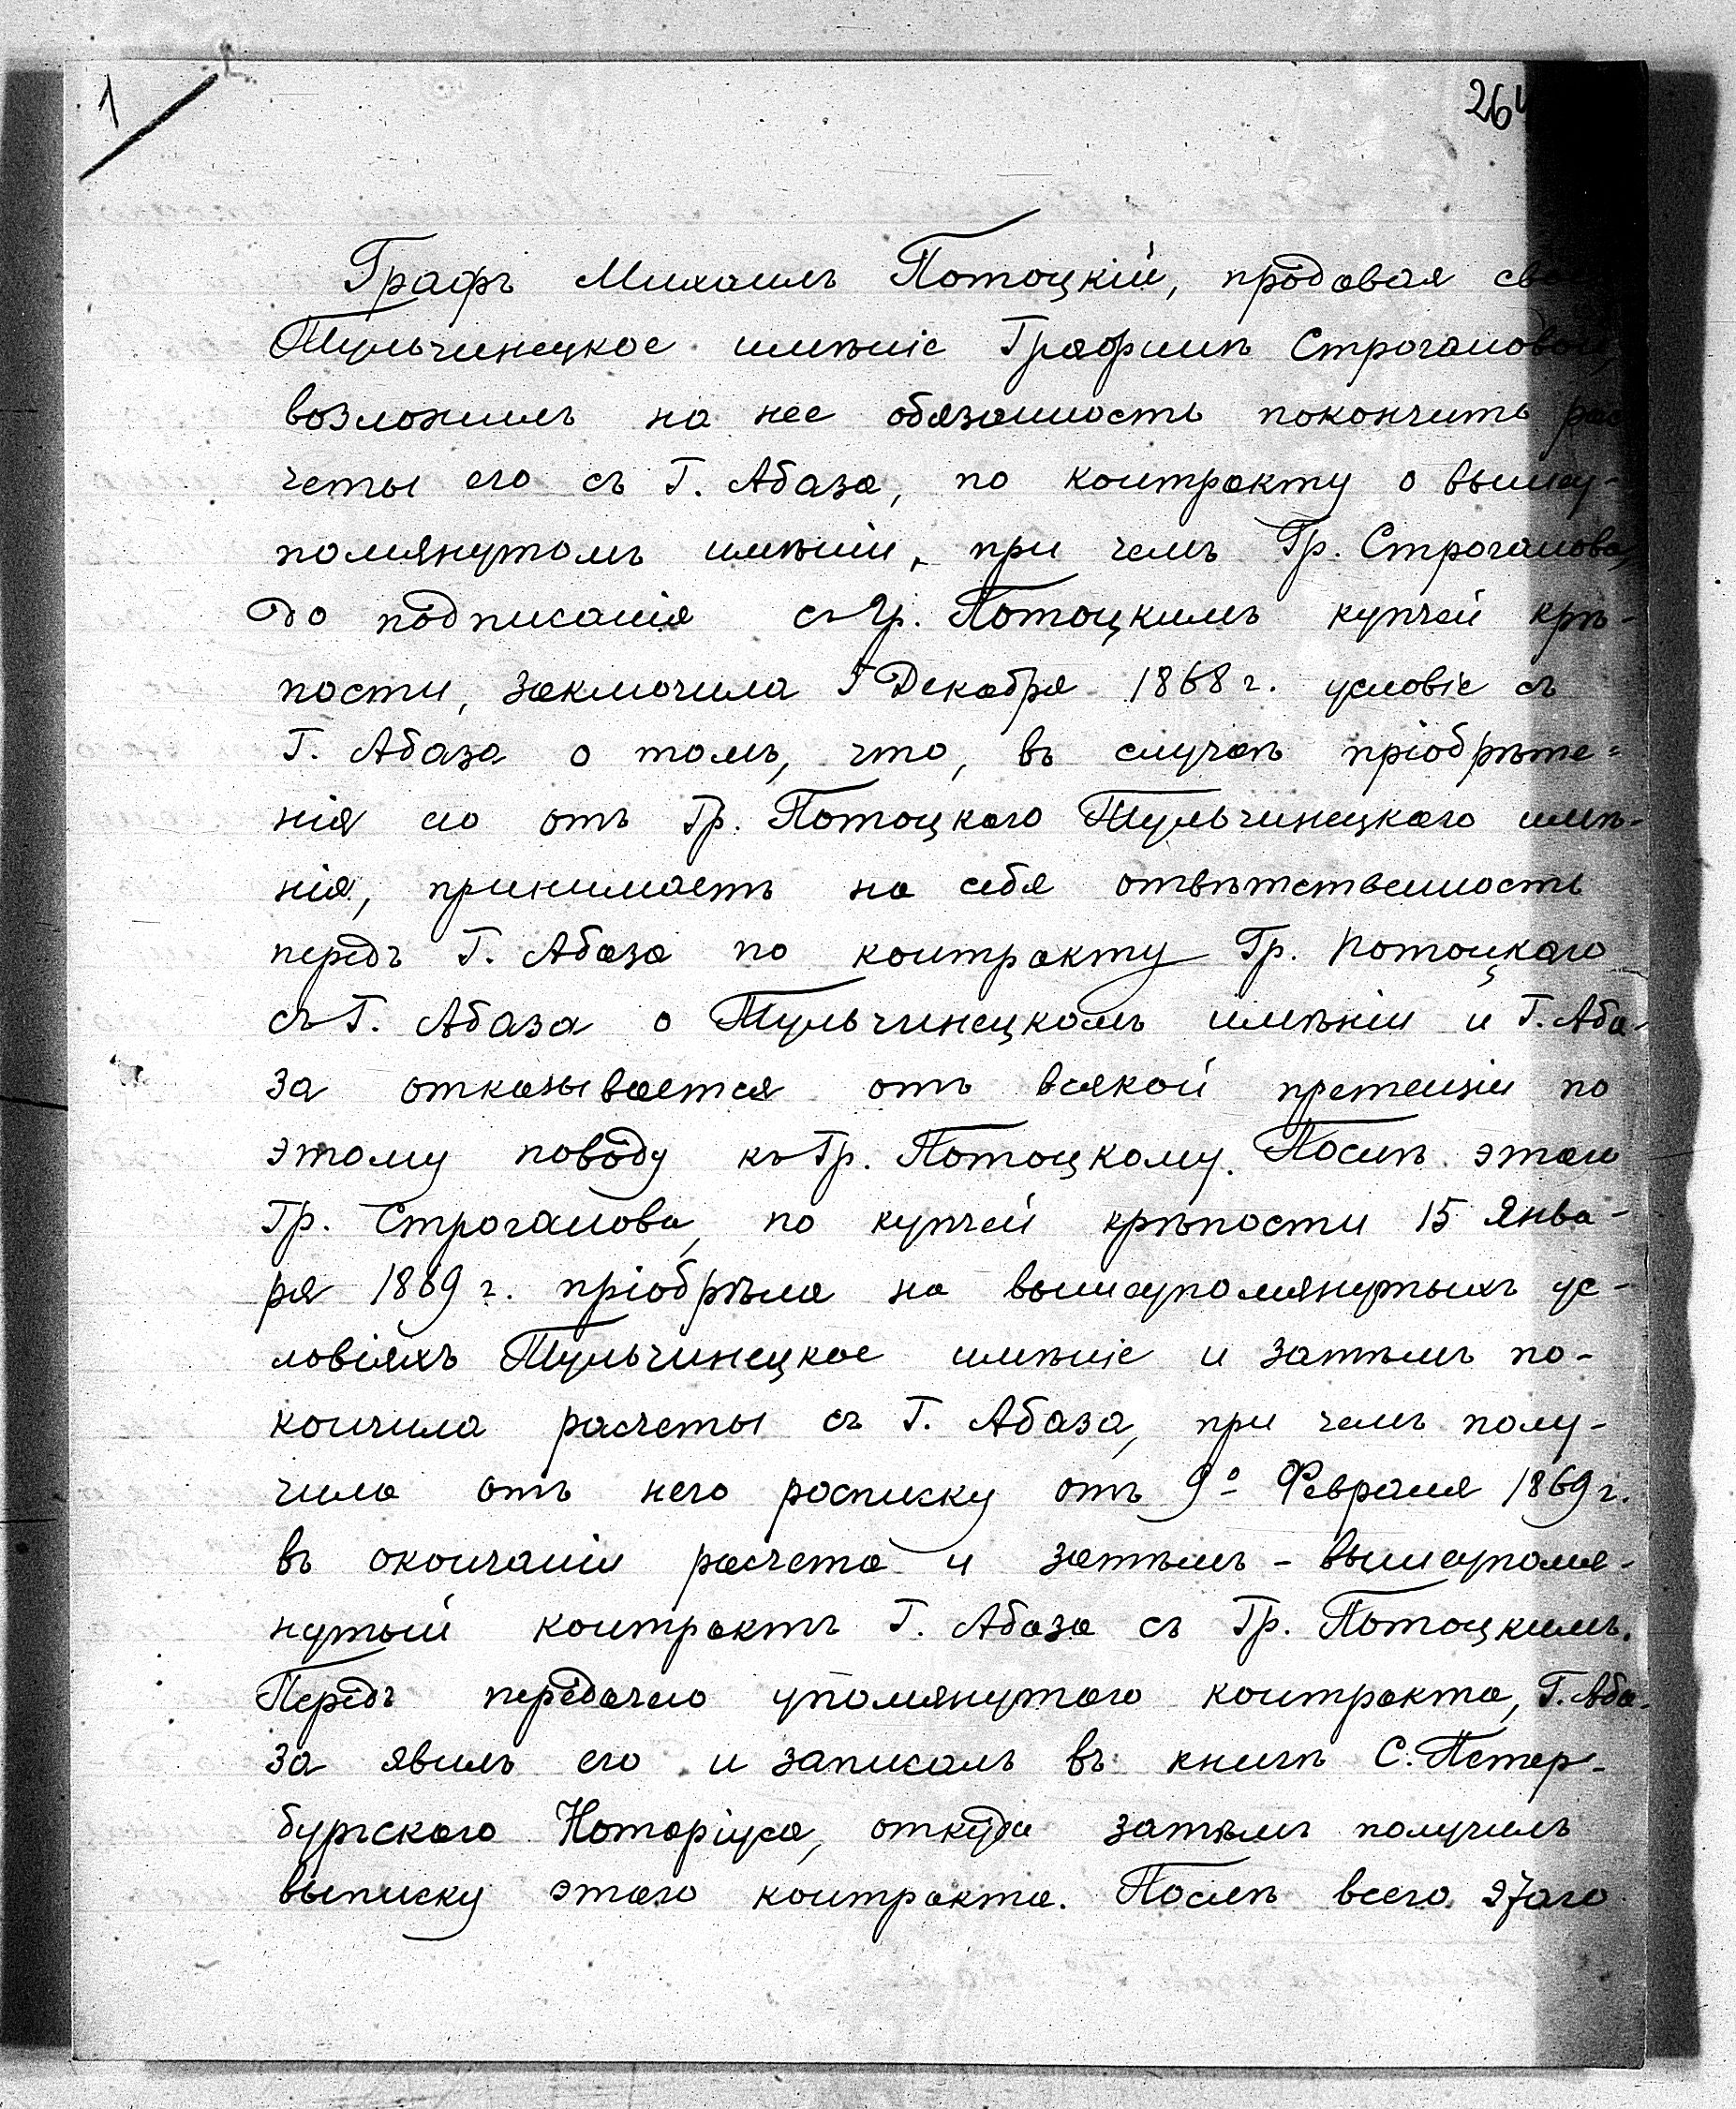 1
264
Графъ Михаилъ Потоцкій, продавая свое
Тульчинецкое имѣніе Графинѣ Строгановой,
возложилъ на нее обязанность покончить рас
четы его съ Г. Абаза, по контракту о вышеу-
помянутомъ имѣніи, при чемъ Гр. Строганова,
до подписанія съ Гр. Потоцкимъ купчей крѣ-
пости, заключила 5 Декабря 1868 г. условіе съ
Г. Абаза о томъ, что, въ случаѣ пріобрѣте=
нія ею отъ Гр. Потоцкаго Тульчинецкаго имѣ-
нія, принимаетъ на себя отвѣтственность
передъ Г. Абаза по контракту Гр. Потоцкаго
съ Г. Абаза о Тульчинецкомъ имѣніи и Г. Аба-
за отказывается отъ всякой претензіи по
этому поводу къ Гр. Потоцкому. Послѣ этого
Гр. Строганова, по купчей крѣпости 15 Янва-
ря 1869 г. пріобрѣла на вышеупомянутыхъ ус-
ловіяхъ Тульчинецкое имѣніе и затѣмъ по-
кончила расчеты съ Г. Абаза, при чемъ полу-
чила отъ него росписку отъ 9º Февраля 1869 г.
въ окончаніи расчета и затѣмъ - вышеупомя-
нутый контрактъ Г. Абаза съ Гр. Потоцкимъ.
Передъ передачею упомянутаго контракта, Г. Аба-
за явилъ его и записалъ въ книгѣ С. Петер-
бургскаго Нотаріуса, откуда затѣмъ получилъ
выписку этого контракта. Послѣ всего этого